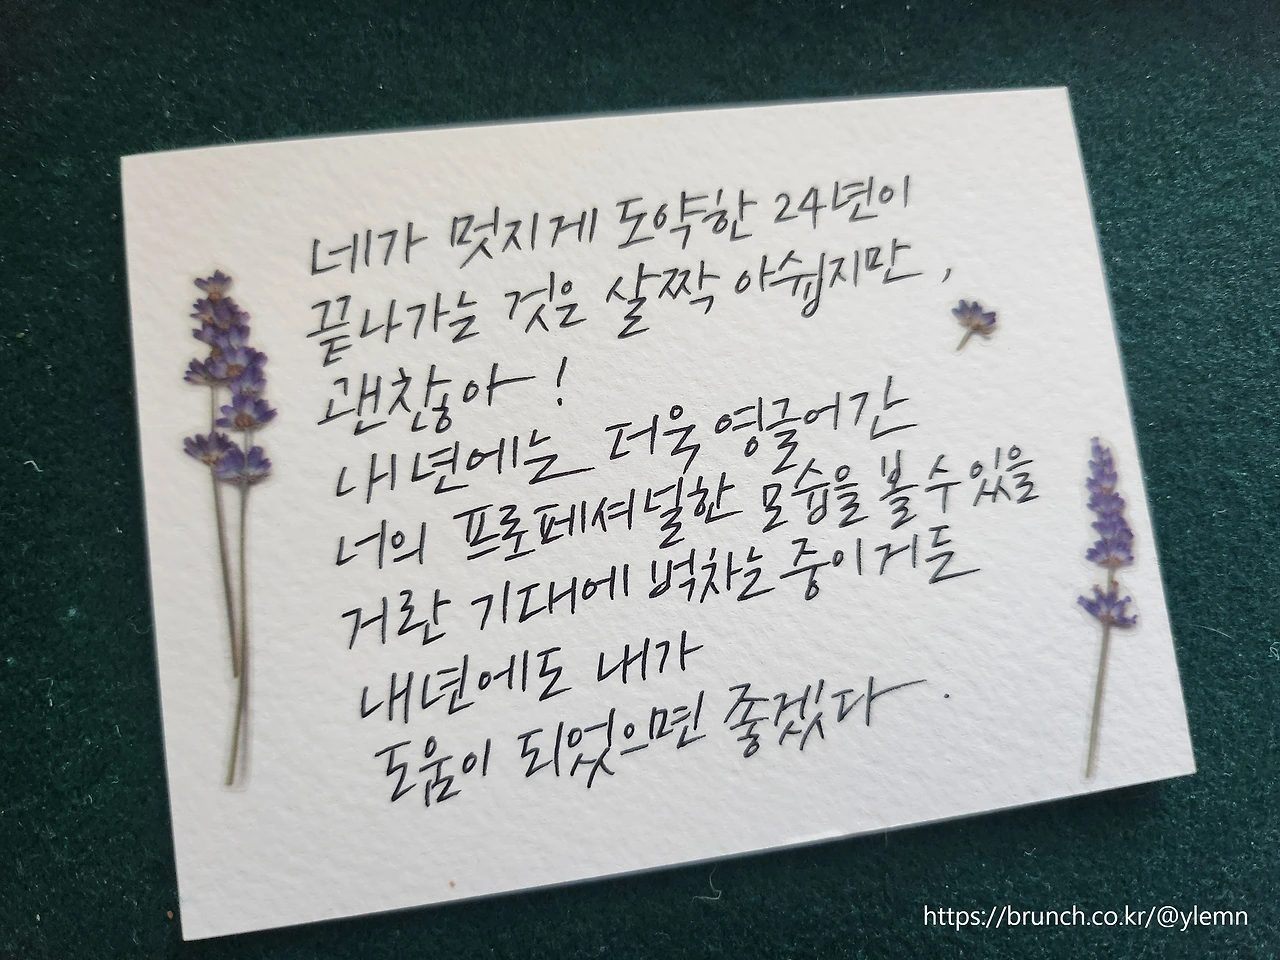 네가 멋지게 도약한 24년이
끝나가는 것은 살짝 아쉽지만,
괜찮아!
내년에는 더욱 영글어간
너의 프로페셔널한 모습을 볼 수 있을
거란 기대에 벅차는 중이거든
내년에도 내가
도움이 되었으면 좋겠다.
https://brunch.co.kr/@ylemn